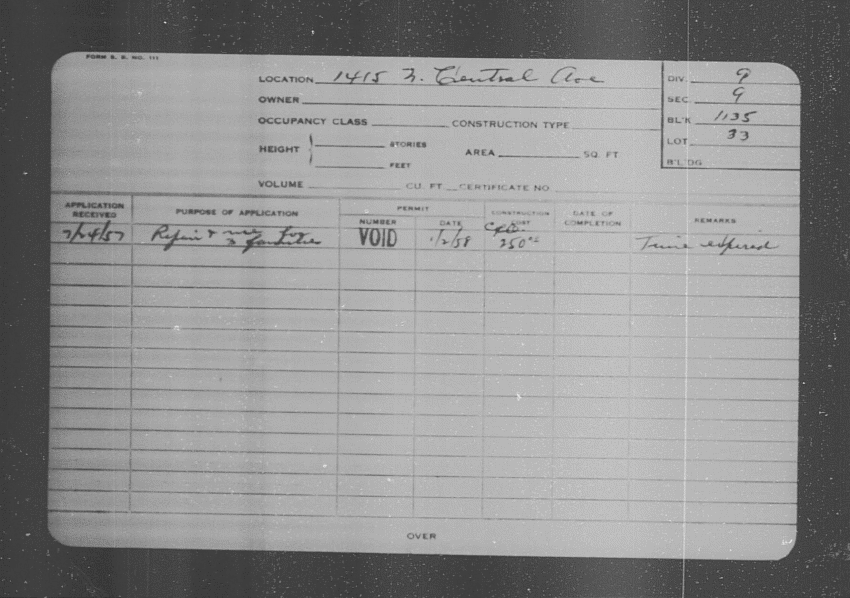 FORM S. B. NO. 111
LOCATION 1415 N. Central Ave
DIV. 9
OWNER
SEC 9
OCCUPANCY CLASS CONSTRUCTION TYPE
BL'K 1135
HEIGHT STORIES
AREA SQ. FT
LOT 33
FEET
B'L'DG
VOLUME CU. FT CERTIFICATE NO
APPLICATION RECEIVED PURPOSE OF APPLICATION PERMIT NUMBER DATE CONSTRUCTION COST DATE OF COMPLETION REMARKS
7/24/57 Repair + for 3 families VOID 1/2/58 250 Time expired
OVER